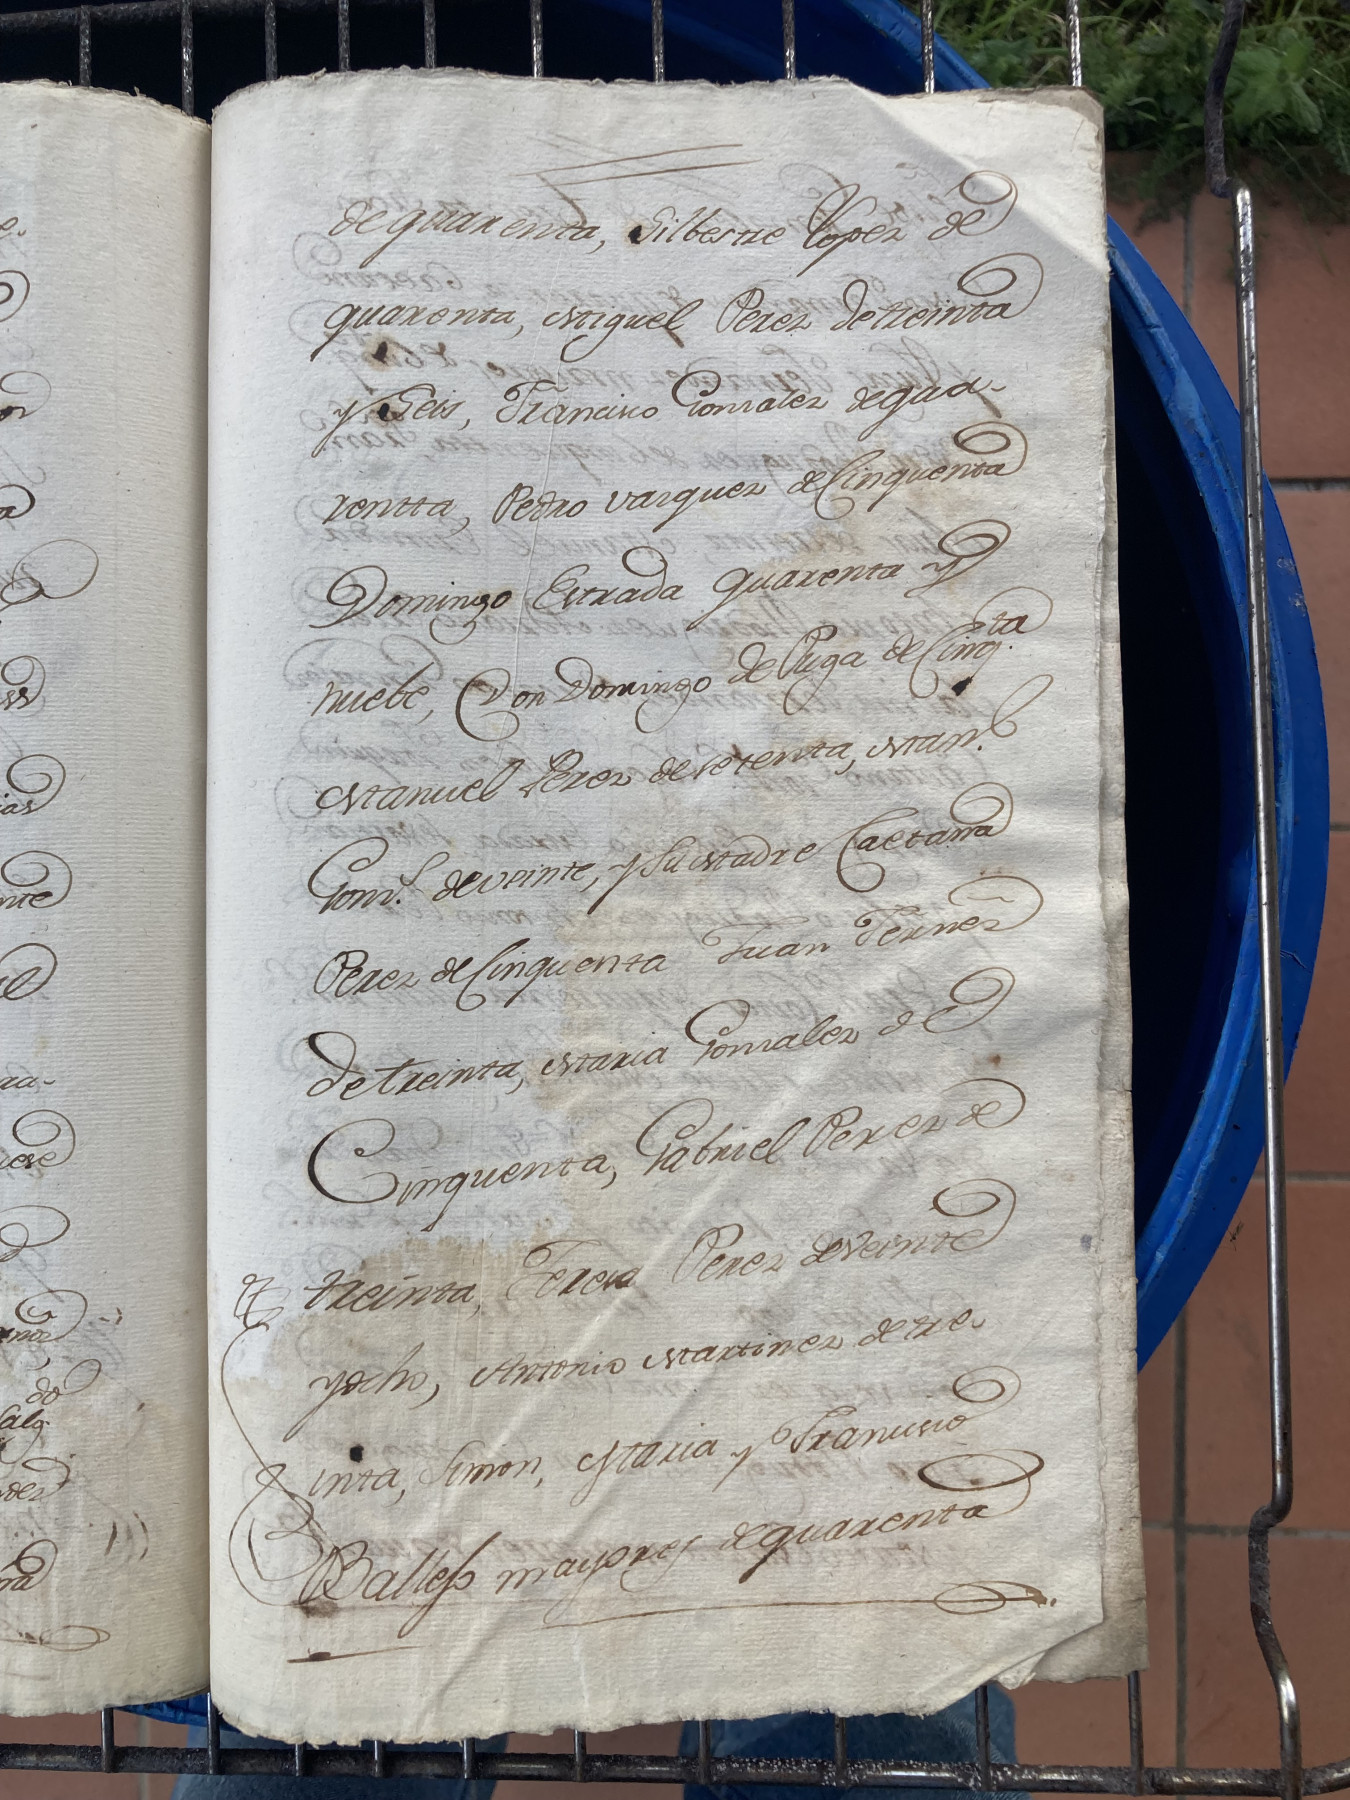 de quarenta, Silbestre Lopez de
quarenta, Miguel Perez de treinta
y Seis, Francisco Gonzalez de qua-
rentta, Pedro Vazquez de Cinquenta
Domingo Estrada quarenta y
nuebe, Don Domingo de Puga de Cinq.ta
Manuel Perez de setenta, Man.l
Gonz.s de veinte, y Su Madre Caetana
Perez de Cinquenta Juan Fernez
de treinta, Maria Gonzalez de
Cinquenta, Gabriel Perez de
treinta, Teresa Perez de Veinte
y ocho, Antonio Martinez de tre-
inta, Simon, Maria y Francisco
mayores de quarenta